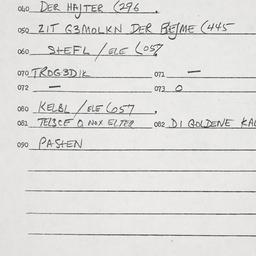 040 DER HAJTER (296.
050 ZIT G3MOLKN DER (445
060 STEFL / ELE (057
070 TROG3DIK 071 —
072 — 073 0
080 KELBL / ELE (057.
081 TEJSCE O NOX ELTER 082 DI GOLDENE KAL
090 PASTEN